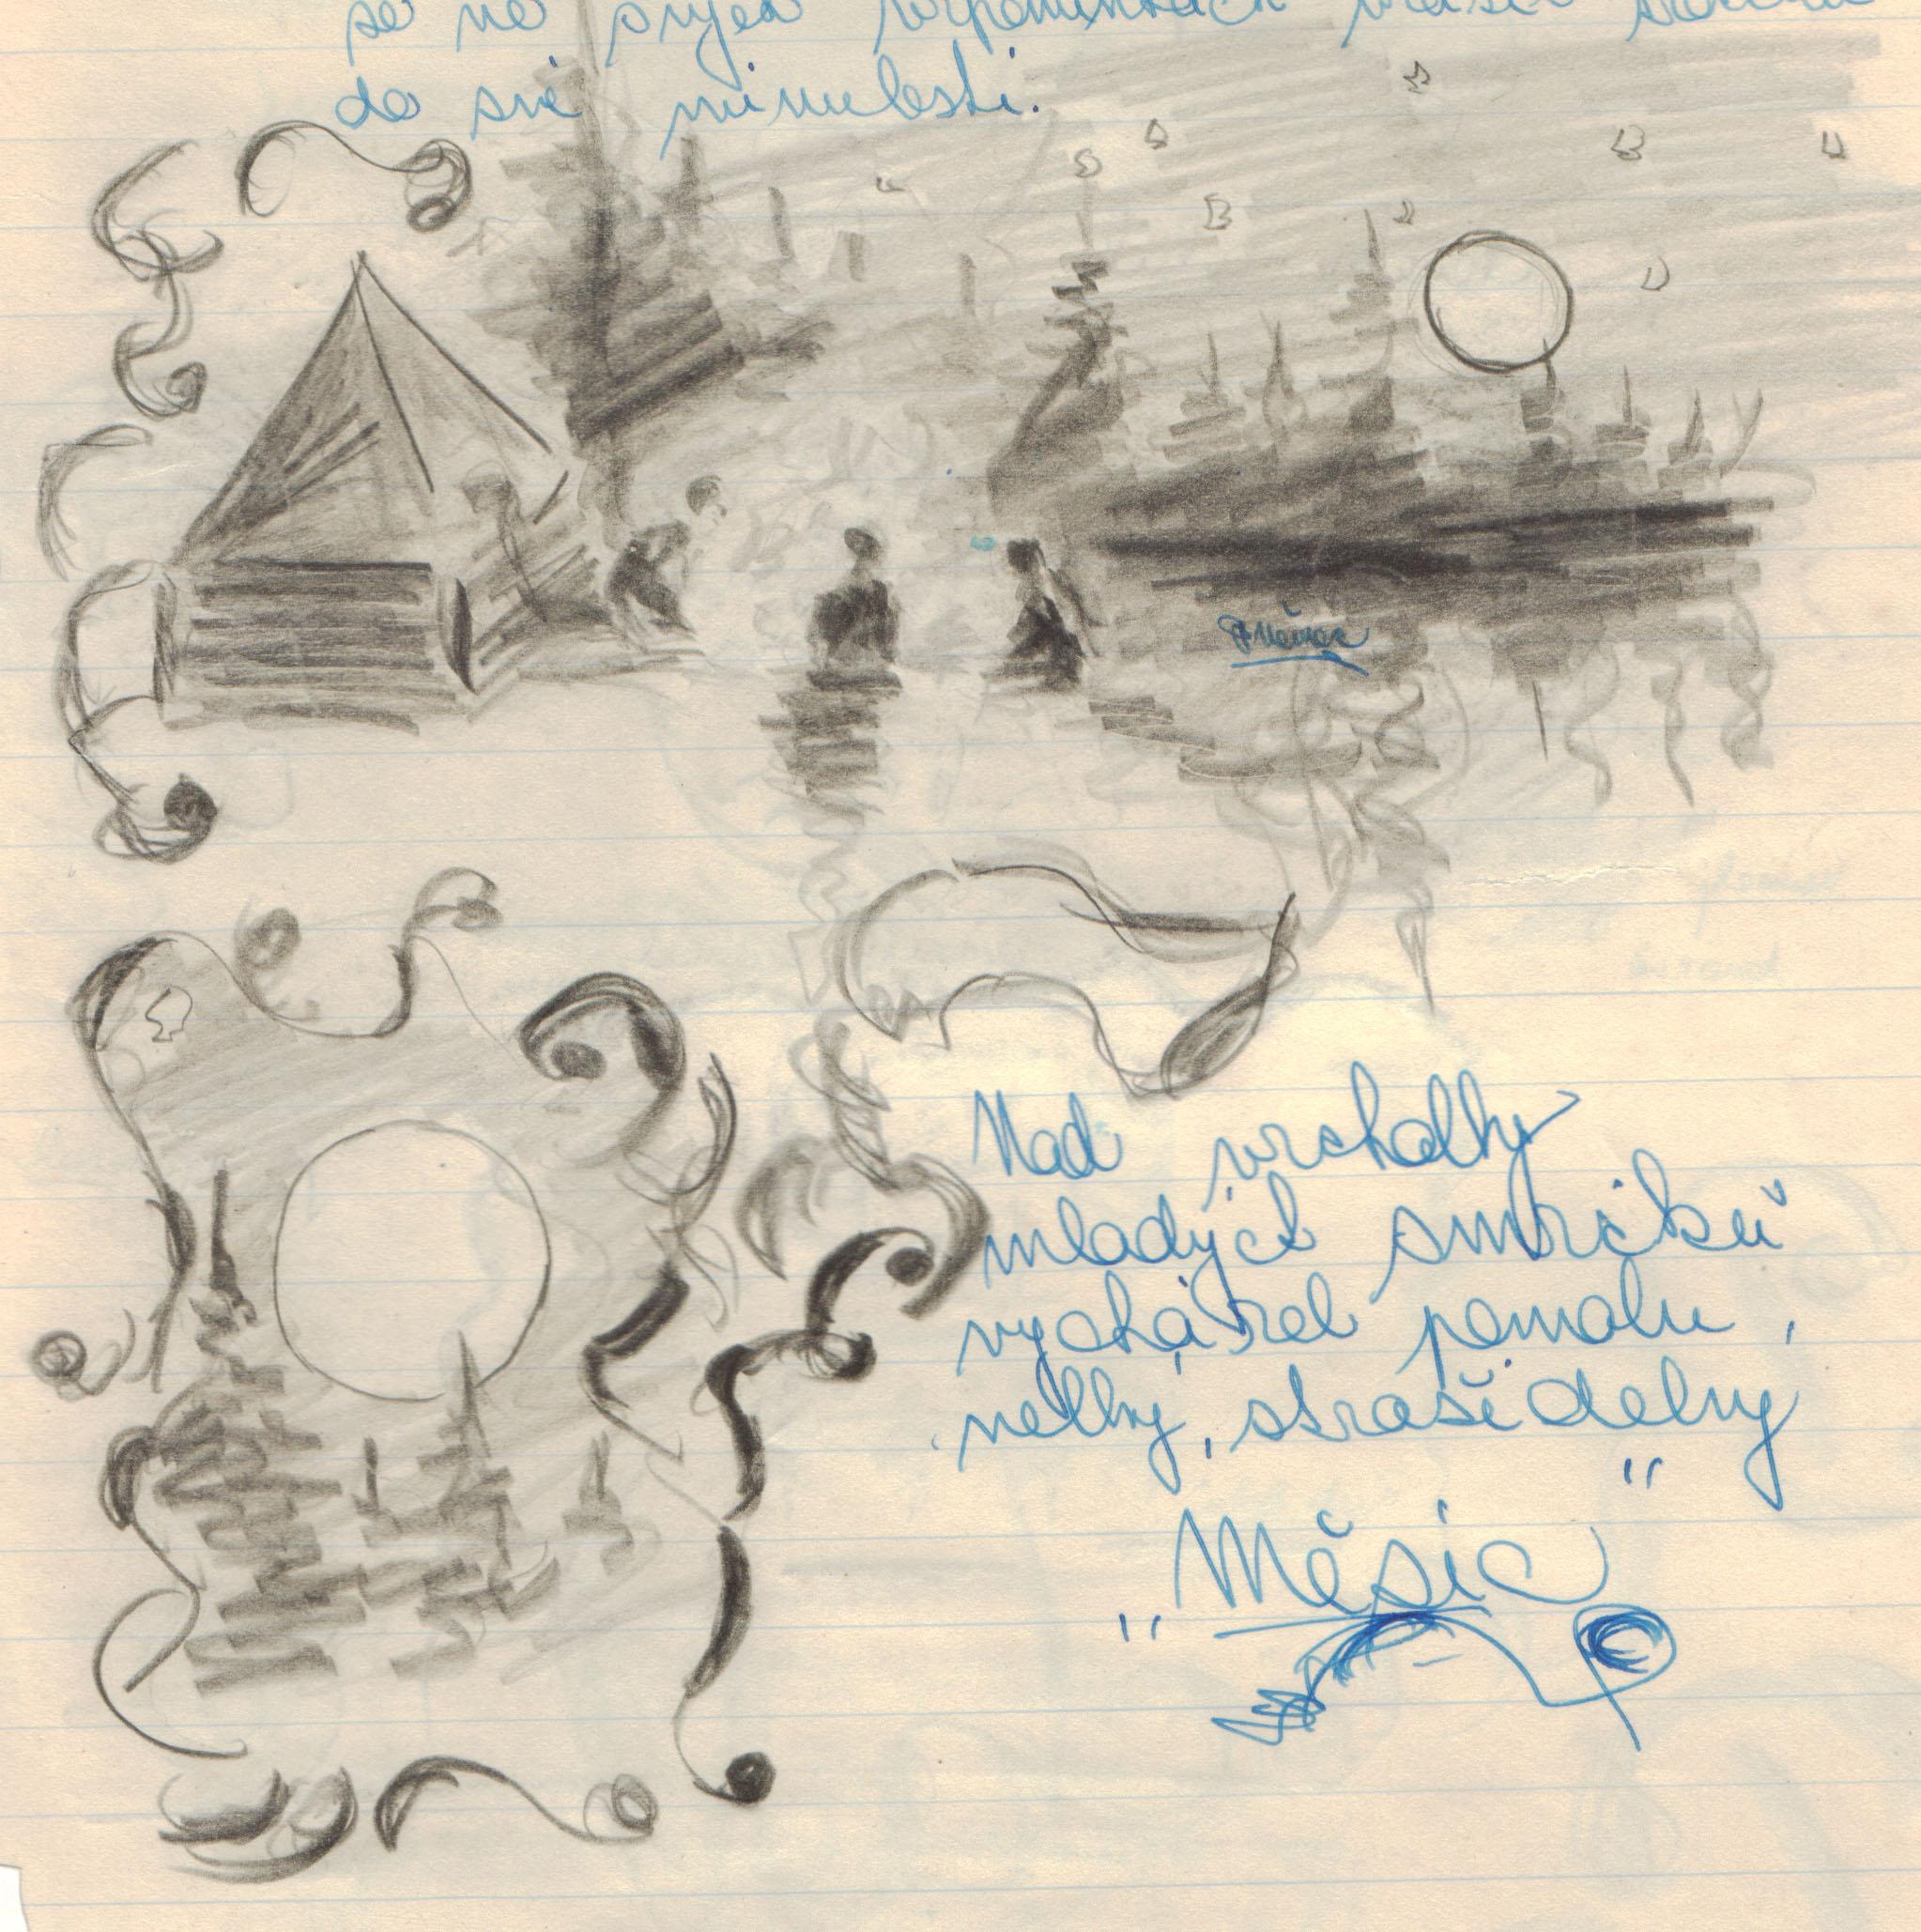 se ve svých vzpomínkách
do své minulosti.
Nad vrcholky
mladých smrčků
vycházel pomalu,
velký, strašidelný
„Měsíc"